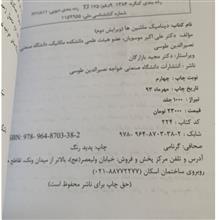 رده بندی کنگره: ۱۳۸۴
شماره کتابشناسی ملی: ۱۱۵۳۹۵۵
نام کتاب: دینامیک ماشین ها (ویرایش دوم)
مولف: دکتر علی اکبر موسویان، عضو هیئت علمی دانشکده مکانیک دانشگاه صنعتی
نصیرالدین طوسی
ویراستار: دکتر مجید بازارگان
ناشر: انتشارات دانشگاه صنعتی خواجه نصیرالدین طوسی
نوبت چاپ: چهارم
تاریخ چاپ: مهرماه ۹۳
تیراژ: ۱۰۰۰ جلد
قیمت: ۲۳۰۰۰ تومان
کد کتاب: ۲۲۴
شابک: ۲-۳۸-۸۷۰۳-۹۶۴-۹۷۸
ISBN: 978-964-8703-38-2
صحافی: گرنامی
چاپ: پدید رنگ
آدرس و تلفن مرکز پخش و فروش: خیابان ولیعصر(عج)، بالاتر از میدان ونک، تقاطع
روبروی ساختمان اسکان (۸۸۷۷۲۲۷۷-۰۲۱)
(حق چاپ برای ناشر محفوظ است)